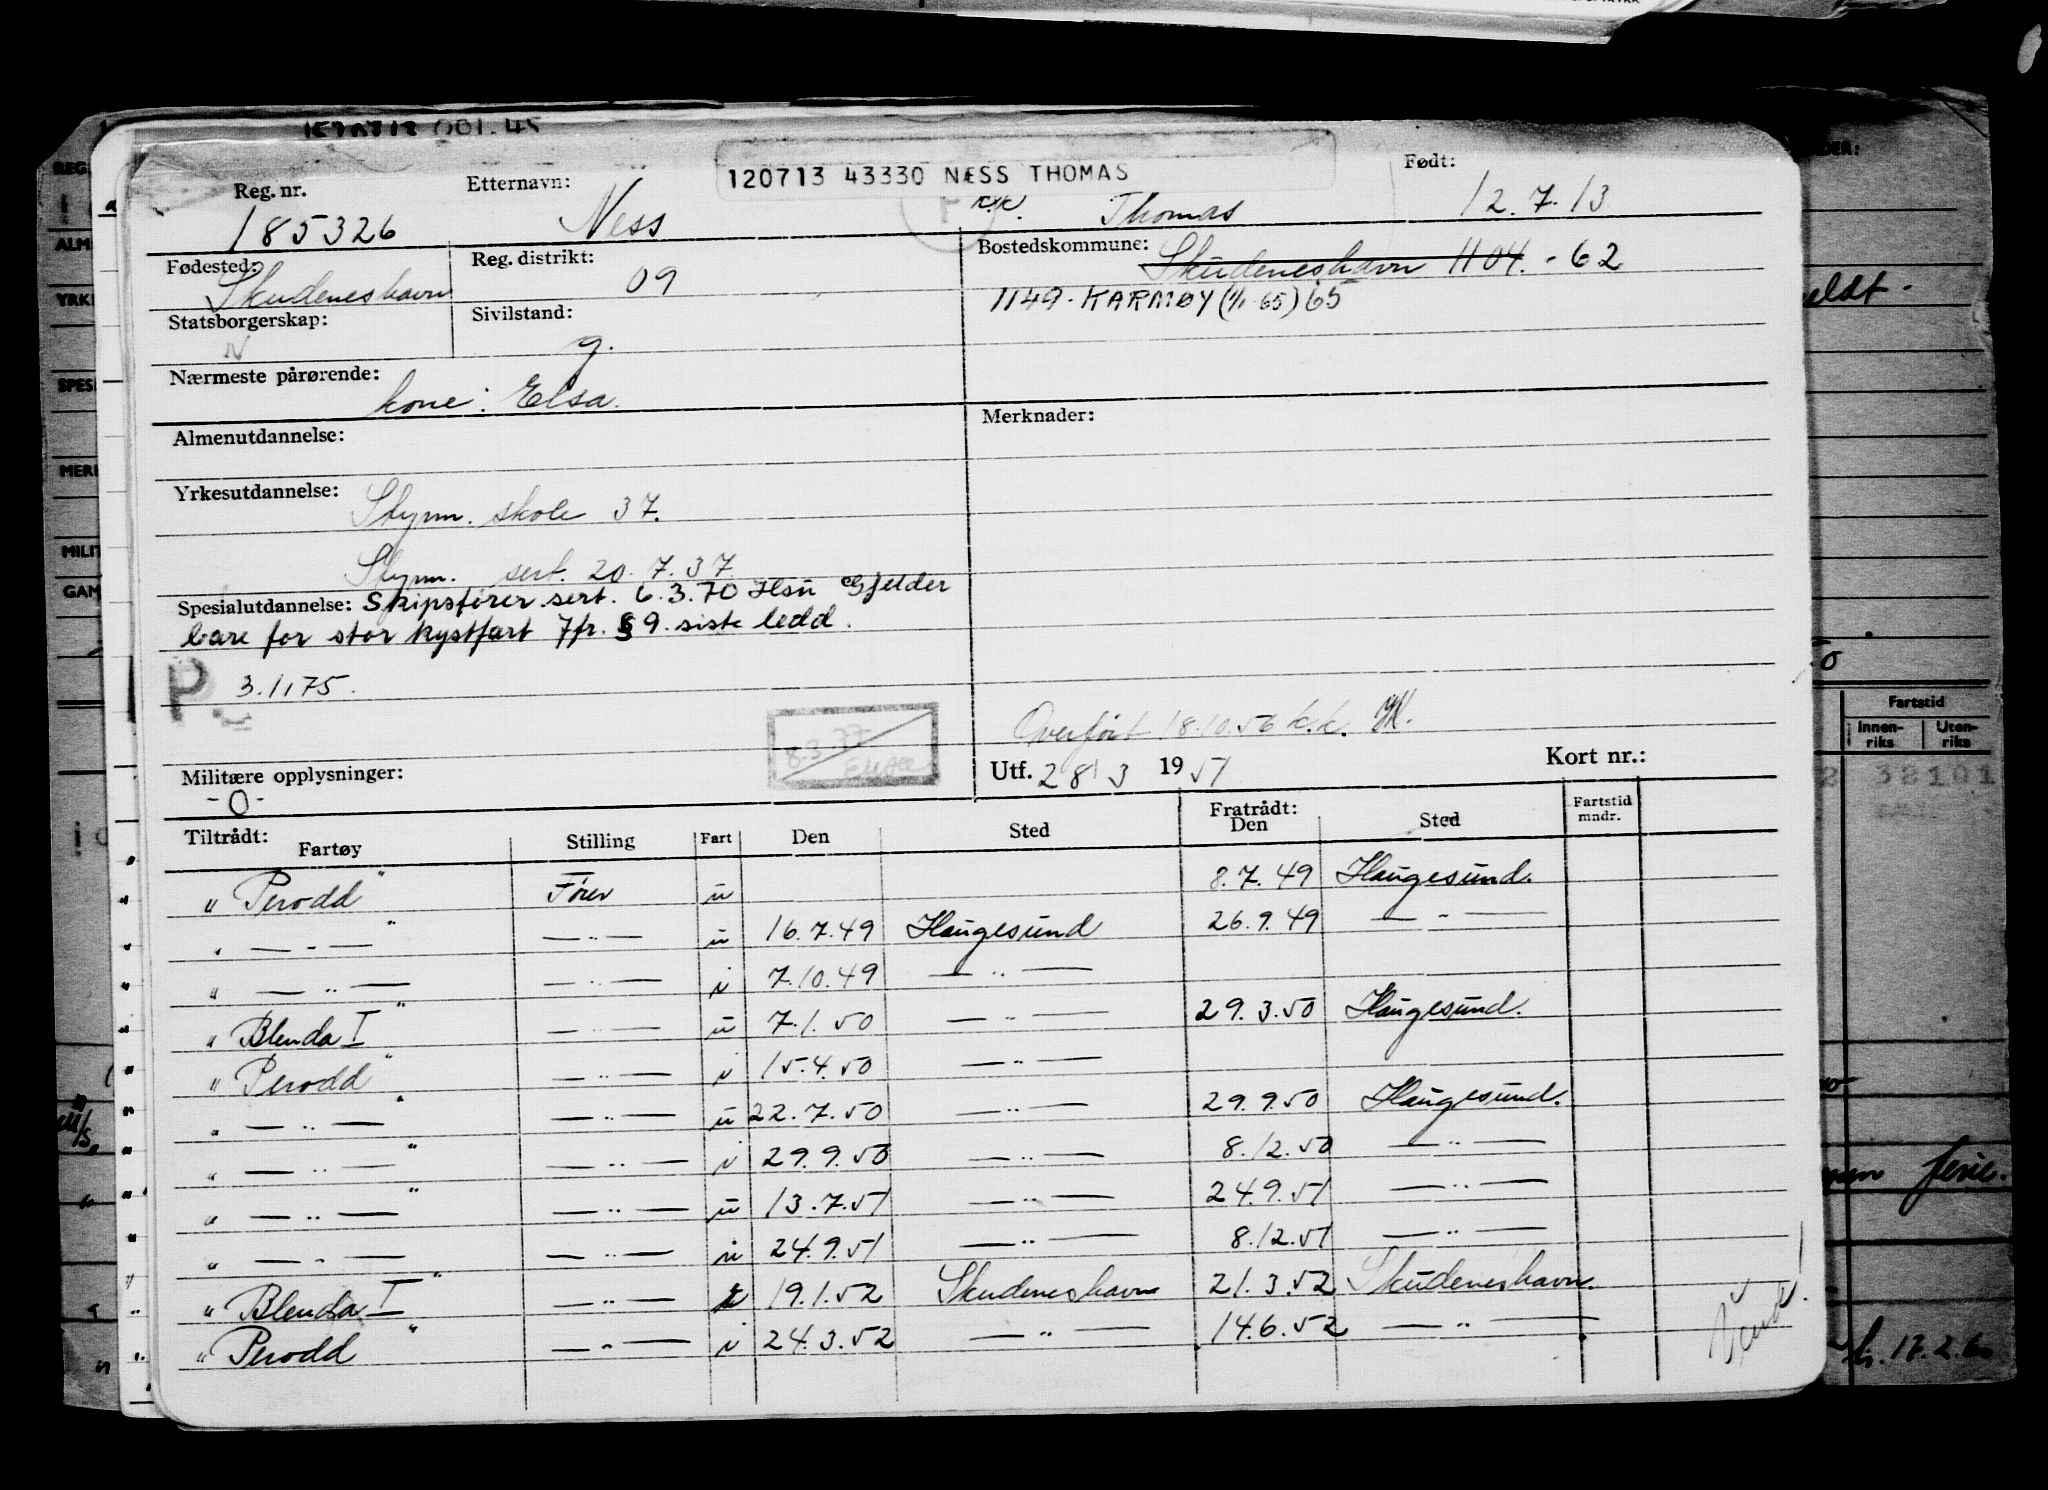 120713 43330 NÆSS THOMAS
Reg. nr. Etternavn: Født:
185326 Ness Thomas 12.7.13
Fødested: Reg. distrikt: Bostedskommune:
Skudeneshavn 09 Skudeneshavn 1104. - 62
1149 - KARMØY (1/1-65) 65
Statsborgerskap: Sivilstand:
N g.
Nærmeste pårørende:
kone: Elsa.
Almenutdannelse: Merknader:
Yrkesutdannelse:
Styrm. skole 37.
Styrm. sert. 20.7.37
Spesialutdannelse: Skipsfører.sert. 6.3.70 Hsū Gjelder
bare for stor kystfart Jfr. § 9. siste ledd.
P. 3.1.75.
Overført 18.10.56 k.k.
Utf. 28/3 1951 Kort nr.:
Militære opplysninger:
-0-
Tiltrådt: Fratrådt:
Fartøy Stilling Fart Den Sted Den Sted Fartstid mndr.
" Perodd " Fører u 8.7.49 Haugesund.
" — " — " — " — u 16.7.49 Haugesund 26.9.49 — " —
" — " — — " — i 7.10.49 — " —
" Blenda I " — " — u 7.1.50 — " — 29.3.50 Haugesund.
" Perodd " — " — i 15.4.50 — " —
" — " — " — " — u 22.7.50 — " — 29.9.50 Haugesund.
" — " — " — " — i 29.9.50 — " — 8.12.50 — " —
" — " — " — " — u 13.7.51 — " — 24.9.51 — " —
" — " — — " — i 24.9.51 — " — 8.12.51 — " —
" Blenda I " — " — 19.1.52 Skudeneshavn 21.3.52 Skudeneshavn.
" Perodd " — " — i 24.3.52 — " — 14.6.52 — " —
Vend!
Fartstid
Innen-riks Uten-riks
32101
ferie.
17.2.60